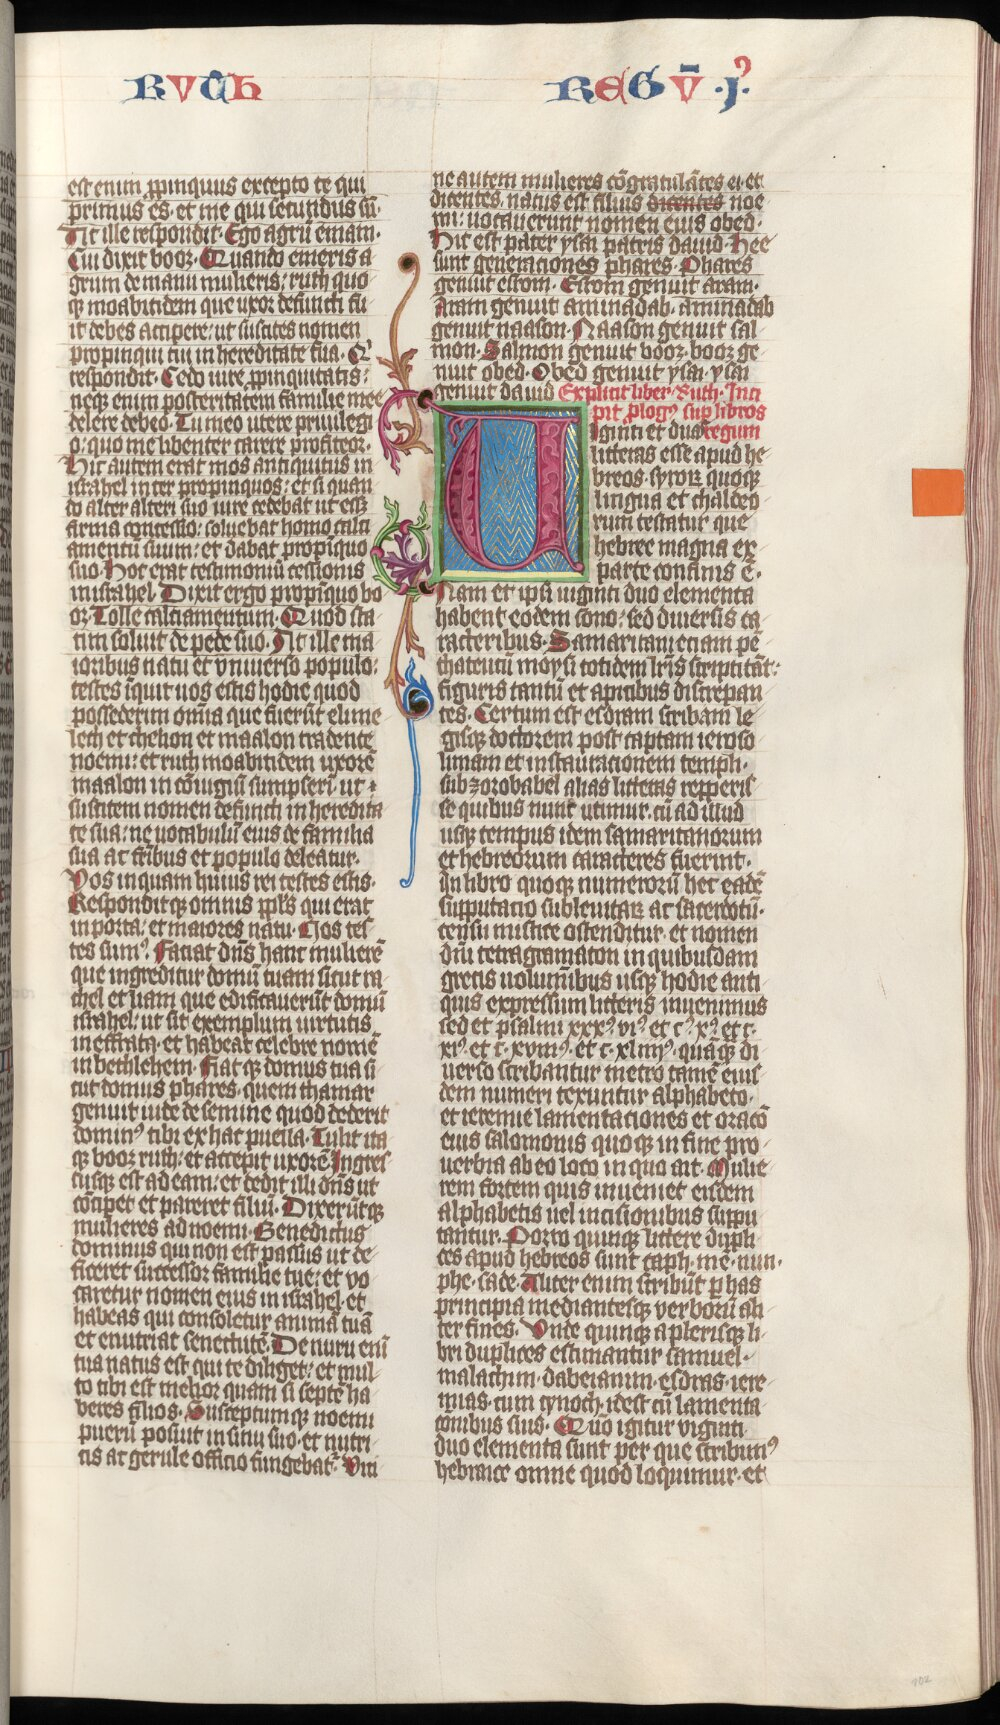 RUTH
REGŪ .I.
est enim ꝓpinquus excepto te qui
primus es. et me qui secundus sū.
At ille respondit. Ego agrū emam.
Cui dixit booz. Quando emeris a
grum de manu mulieris: ruth quo
qꝫ moabitidem que uxor defuncti fu
it debes accipere: ut suscites nomen
propinqui tui in hereditate sua. Qi
respondit. Cedo iure ꝓpinquitatis:
neqꝫ enim posteritatem familie mee
delere debeo. Tu meo utere priuilegi
o: quo me libenter carere profiteor.
Hic autem erat mos antiquitus in
israhel inter propinquos: et si quan
do alter alteri suo iure cedebat ut esꝫ
firma concessio: soluebat homo calci
amentū suum: et dabat propīquo
suo. Hoc erat testimoniū cessionis
in israhel. Dixit ergo propīquo bo
oz. Tolle calciamentum. Quod sta
tim soluit de pede suo. At ille ma
ioribus natu et vniuerso populo:
testes īquit uos estis hodie quod
possederim omīa que fuerūt elime
lech et chelion et maalon tradente
noemi: et ruth moabitidem uxorē
maalon in cōiugiū sumpseri ut
suscitem nomen defuncti in heredita
te sua: ne vocabulū eius de familia
sua ac frībus et populo deleatur.
Vos inquam huius rei testes estis.
Respondit qꝫ omnis ppls qui erat
in porta: et maiores natu. Nos tes
tes sumꝰ. Faciat dn̄s hanc mulierē
que ingreditur domū tuam sicut ra
chel et liam que edificauerūt domū
israhel: ut sit exemplum uirtutis
in effrata. et habeat celebre nomē
in bethlehem. Fiat qꝫ domus tua si
cut domus phares. quem thamar
genuit iude de semine quod dederit
dominꝰ tibi ex hac puella. Tulit ita
qꝫ booz ruth: et accepit uxorē. Ingres
susqꝫ est ad eam: et dedit illi dn̄s ut
cōciperet et pareret filiū. Dixerūt qꝫ
mulieres ad noemi. Benedictus
dominus qui non est passus ut de
ficeret successor familie tue: et vo
caretur nomen eius in israhel. et
habeas qui consoletur animā tuā
et enutriat senectutē. De nuru enī
tua natus est qui te diliget: et mul
to tibi est melior quam si septē ha
beres filios. Susceptum qꝫ noemi
puerū posuit in sinu suo. et nutri
cis ac gerule officio fungebatꝰ. Vici
ne autem mulieres cōgratulātes ei. et
dicentes. natus est filius dicentes noe
mi: uocauerunt nomen eius obed.
Hic est pater ysai patris dauid. Hee
sunt generaciones phares. Phares
genuit esrom. Esrom genuit aram.
Aram genuit aminadab. aminadab
genuit naason. Naason genuit sal
mon. Salmon genuit booz. booz ge
nuit obed. Obed genuit ysai. ysai
genuit dauid Explicit liber. Ruth. Inci
pit ꝓlogꝰ sup libros
Uiginti et duas regum
litteras esse apud he
breos. syroꝝ quoqꝫ
lingua et chaldeo
rum testatur que
hebree magna ex
parte confinis ē.
Nam et ipsi uiginti duo elementa
habent eodem sono: sed diuersis ca
racteribus. Samaritani eciam pē
thateucū moysi totidem lr̄is scriptitāt:
figuris tantū et apicibus discrepan
tes. Certum est esdram scribam le
gisqꝫ doctorem post captam ieroso
limam et instauracionem templi.
sub zorobabel alias litteras repperis
se quibus nunc utimur. cū ad illud
usqꝫ tempus idem samaritanorum
et hebreorum caracteres fuerint.
In libro quoqꝫ numerorū hec eadē
supputacio sub leuitaꝝ ac sacerdotū.
censu mistice ostenditur. et nomen
dn̄i tetragramaton in quibusdam
grecis uoluminibus usqꝫ hodie anti
quis expressum litteris inuenimus
sed et psalmi xxxꝰ. viꝰ. et cꝰ. xꝰ. et c.
xiꝰ. et c. xviiiꝰ. et c. xliiiiꝰ. quāqꝫ di
uerso scribantur metro tamē eius
dem numeri texuntur alphabeto.
et ieremie lamentaciones et oracō
eius salomonis quoqꝫ in fine pro
uerbia ab eo loco in quo ait. Mulie
rem fortem quis inueniet eisdem
alphabetis uel incisionibus suppu
tantur. Porro quinqꝫ littere dupli
ces apud hebreos sunt caph. mē. nun.
phe. sade. Aliter enim scribūt ꝑ has
principia mediantesqꝫ verborū ali
ter fines. Vnde quinqꝫ a plerisqꝫ li
bri duplices estimantur samuel.
malachim. dabreiamin. esdras. iere
mias. cum cynoth. idest cū lamenta
cōnibus suis. Quō igitur viginti
duo elementa sunt per que scribimꝰ
hebraice omne quod loquimur. et
102